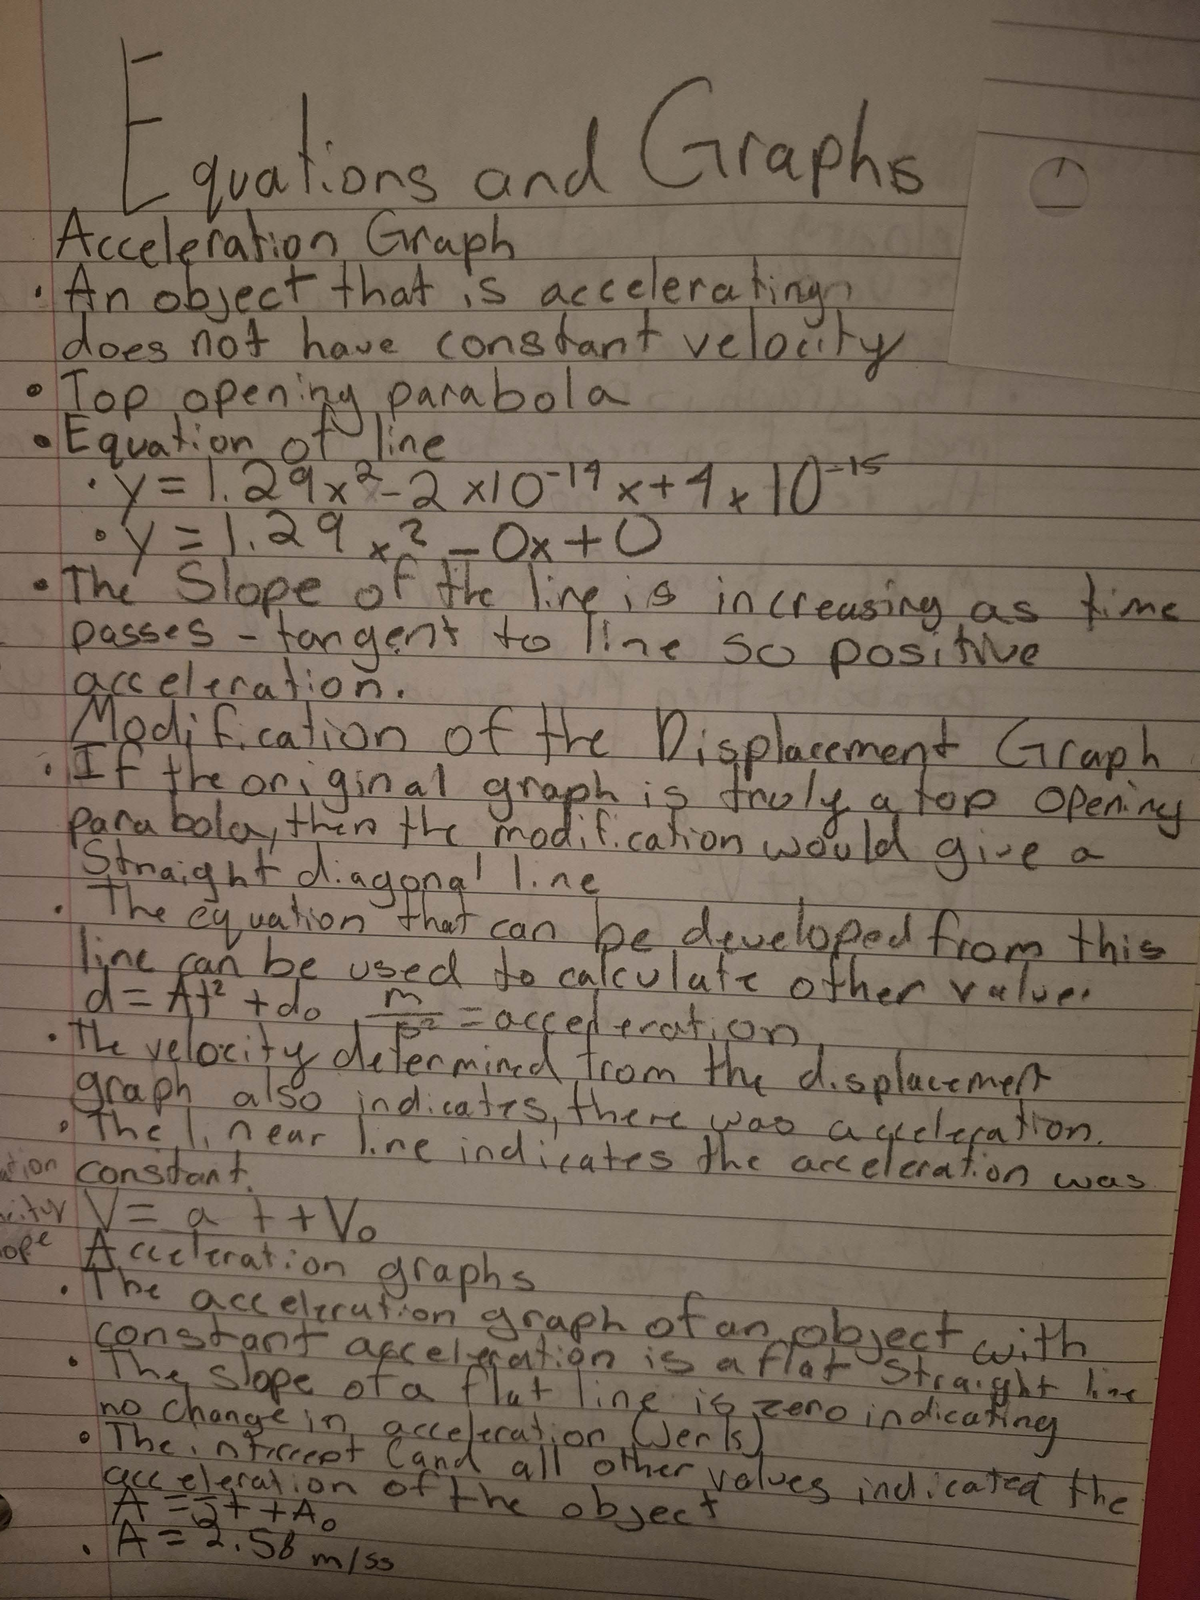 Equations and Graphs
Acceleration Graph
• An object that is accelerating
does not have constant velocity
• Top opening parabola
• Equation of line
• y = 1.29x² - 2 x10⁻¹⁴ x + 4 x 10⁻¹⁵
• y = 1.29 x² - 0x + 0
• The Slope of the line is increasing as time
passes - tangent to line so positive
acceleration.
Modification of the Displacement Graph
• If the original graph is truly a top opening
parabola, then the modification would give a
Straight diagonal line
• The equation that can be developed from this
line can be used to calculate other values
d = At² + d₀ m/s² = acceleration
• The velocity determined from the displacement
graph also indicates, there was acceleration.
• The linear line indicates the acceleration was
constant.
V = a t + V₀
Acceleration graphs
• The acceleration graph of an object with
constant acceleration is a flat straight line
• The slope of a flat line is zero indicating
no change in acceleration (Jerk)
• The intercept (and all other values indicated the
acceleration of the object
A = t + A₀
• A = 2.58 m/ss